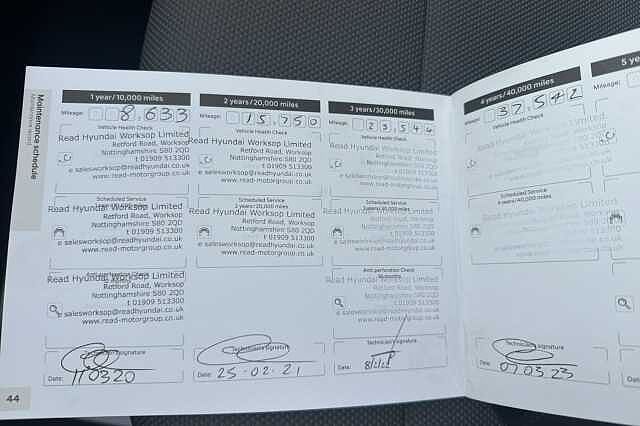 Maintenance schedule
1 year/10,000 miles
Mileage: 8,633
Vehicle Health Check
Read Hyundai Worksop Limited
Retford Road, Worksop
Nottinghamshire S80 2QD
t 01909 513300
e salesworksop@readhyundai.co.uk
www.read-motorgroup.co.uk
Scheduled Service
Read Hyundai Worksop Limited
Retford Road, Worksop
Nottinghamshire S80 2QD
t 01909 513300
e salesworksop@readhyundai.co.uk
www.read-motorgroup.co.uk
Anti perforation Check
Read Hyundai Worksop Limited
Retford Road, Worksop
Nottinghamshire S80 2QD
t 01909 513300
e salesworksop@readhyundai.co.uk
www.read-motorgroup.co.uk
Technician signature
Date: 110320
44
2 years/20,000 miles
Mileage: 15,750
Vehicle Health Check
Read Hyundai Worksop Limited
Retford Road, Worksop
Nottinghamshire S80 2QD
t 01909 513300
e salesworksop@readhyundai.co.uk
www.read-motorgroup.co.uk
Scheduled Service
2 years/20,000 miles
Read Hyundai Worksop Limited
Retford Road, Worksop
Nottinghamshire S80 2QD
t 01909 513300
e salesworksop@readhyundai.co.uk
www.read-motorgroup.co.uk
Technicians signature
Date: 25-02-21
3 years/30,000 miles
Mileage: 23,544
Vehicle Health Check
Read Hyundai Worksop Limited
Retford Road, Worksop
Nottinghamshire S80 2QD
t 01909 513300
e salesworksop@readhyundai.co.uk
www.read-motorgroup.co.uk
Scheduled Service
3 years/30,000 miles
Read Hyundai Worksop Limited
Retford Road, Worksop
Nottinghamshire S80 2QD
t 01909 513300
e salesworksop@readhyundai.co.uk
www.read-motorgroup.co.uk
Anti perforation Check
Read Hyundai Worksop Limited
Retford Road, Worksop
Nottinghamshire S80 2QD
t 01909 513300
e salesworksop@readhyundai.co.uk
www.read-motorgroup.co.uk
Technician's signature
Date:
4 years/40,000 miles
Mileage: 37,542
Vehicle Health Check
Scheduled Service
4 years/40,000 miles
Technicians signature
Date: 07.03.23
5 ye
Mileage:
Date: